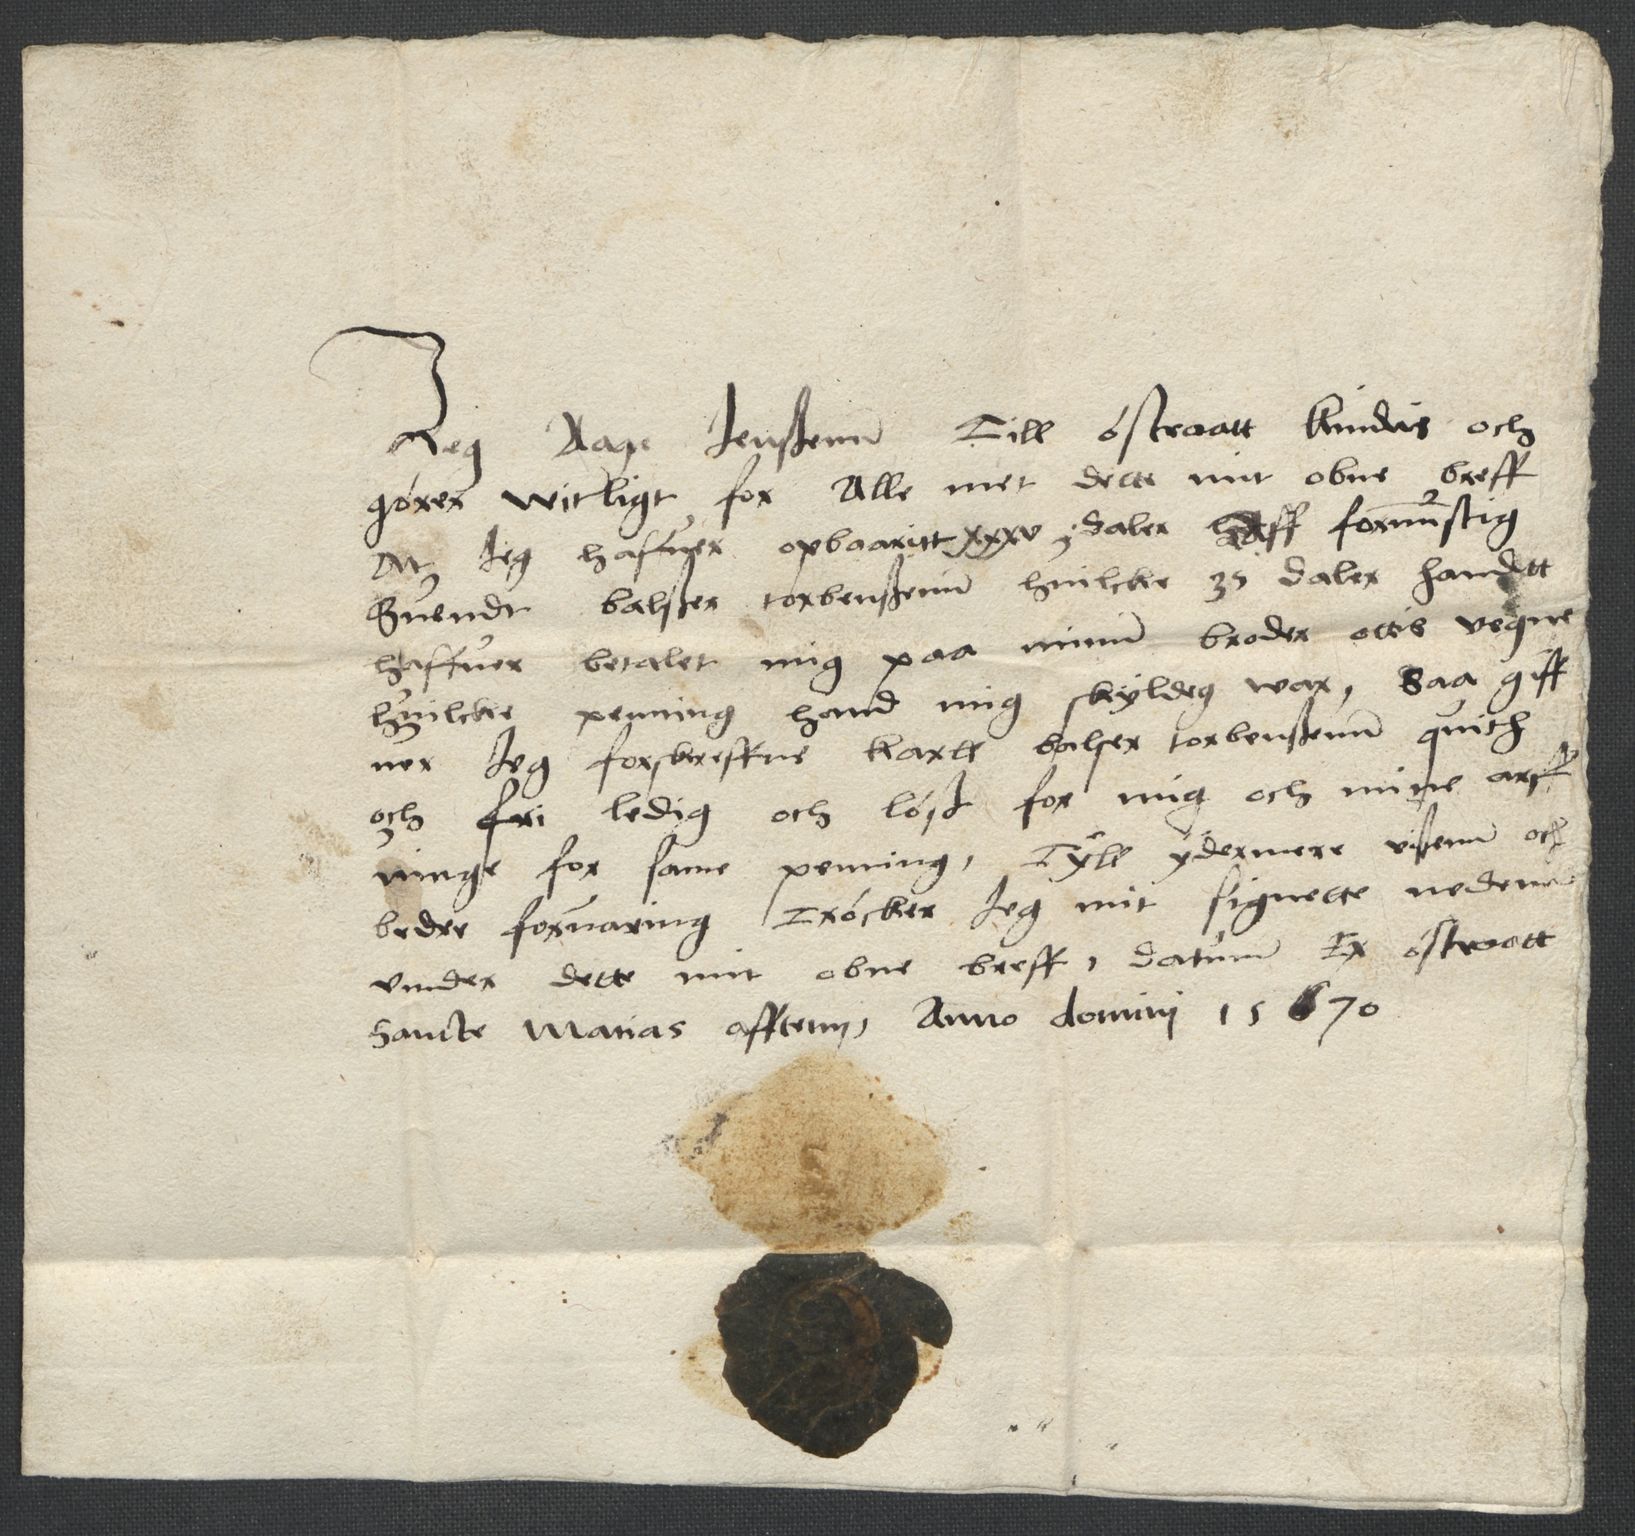 Jeg Aage Jenssenn Till östraatt kiindis och
görer witligt for Alle met dette mit obne breff
At Jeg haffuer opbaaritt xxxv daler aff fornunstig
Suendt balsser torbenssenn huilcke 35 daler handtt
haffuer betalet mig paa minn broder ottis vegne
huilcke penning hand mig skyldeg war, Saa giff
uer Jeg forskreffne karll balser torbenssenn quith
och fri ledig och löss for mig och mine arff
ninge for same penning, Tyll ydermere visenn och
bedre foruaring Tröcker Jeg mit signette nedenn
vnder dette mit obne breff, datum Ex östraatt
Sancte Matias afftenn, Anno dominj 1570